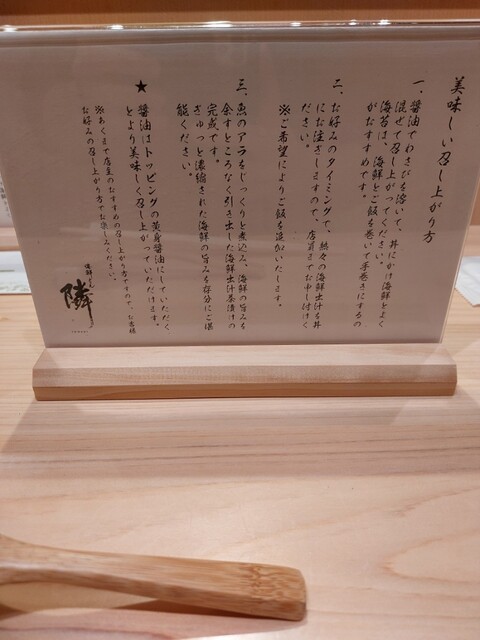 美味しい召し上がり方
一、醤油でわさびを溶いて、丼にかけ海鮮とよく
混ぜて召し上がってください。
海苔は、海鮮とご飯を巻いて手巻きにするの
がおすすめです。
二、お好みのタイミングで、熱々の海鮮出汁を丼
にお注ぎしますので、店員までお申し付けく
ださい。
※ご希望によりご飯を追加いたします。
三、魚のアラをじっくりと煮込み、海鮮の旨みを
余すところなく引き出した海鮮出汁茶漬けの
完成です。
ぎゅっと濃縮された海鮮の旨みを存分にご堪
能ください。
★醤油はトッピングの黄身醤油にしていただく
とより美味しく召し上がっていただけます。
※あくまで店主のおすすめの召し上がり方ですので、お客様
お好みの召し上がり方でお楽しみください。
海鮮どん
隣